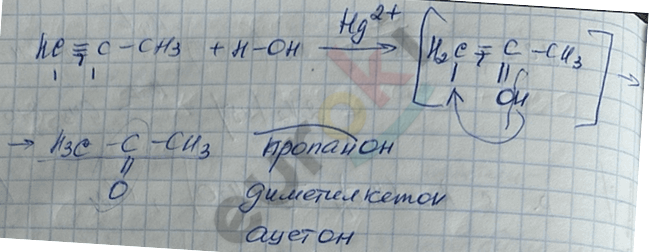 HC ≡ C - CH3 + H-OH Hg2+ → [H2C = C - CH3 →
OH]
→ H3C - C - CH3 пропанон
O
диметилкетон
ацетон